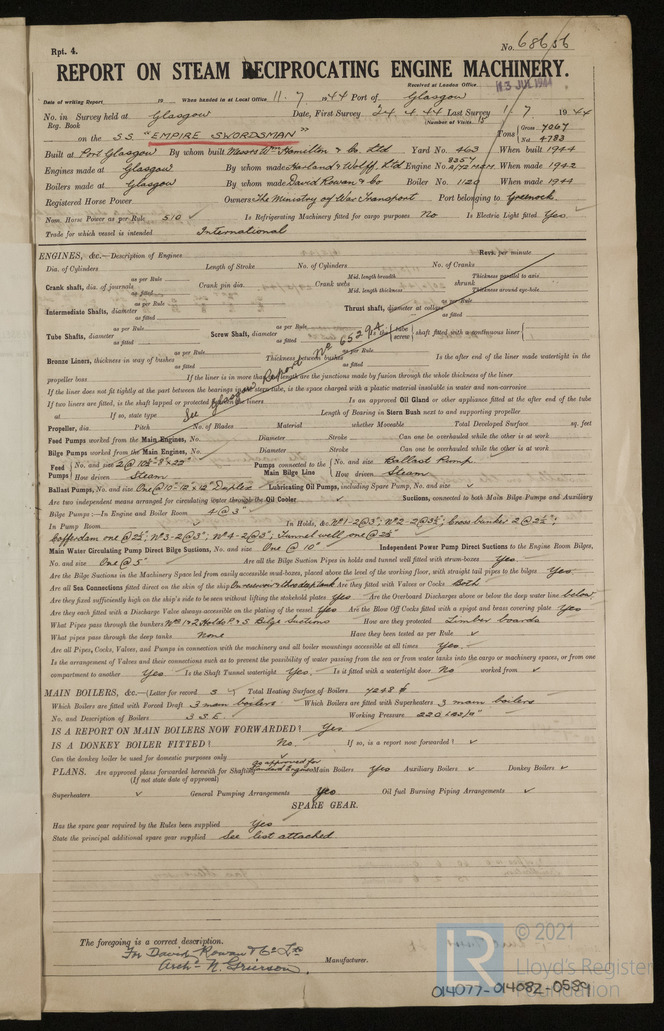 Rpt. 4.
No. 68656
REPORT ON STEAM RECIPROCATING ENGINE MACHINERY.
Received at London Office 13 JUL 1944
Date of writing Report 19 When handed in at Local Office 11. 7 1944 Port of Glasgow
No. in Survey held at Glasgow Date, First Survey 24. 4. 44 Last Survey 1/7 1944
Reg. Book (Number of Visits
on the S.S. "EMPIRE SWORDSMAN" Tons Gross 7067 Net 4783
Built at Port Glasgow By whom built Messrs Wm Hamilton & Co. Ltd Yard No. 463 When built 1944
Engines made at Glasgow By whom made Harland & Wolff, Ltd Engine No. When made 1942
Boilers made at Glasgow By whom made David Rowan & Co Boiler No. 1120 When made 1944
Registered Horse Power Owners The Ministry of War Transport Port belonging to Greenock
Nom. Horse Power as per Rule 510 Is Refrigerating Machinery fitted for cargo purposes No Is Electric Light fitted Yes
Trade for which vessel is intended International
ENGINES, &c.—Description of Engines Revs. per minute
Dia. of Cylinders Length of Stroke No. of Cylinders No. of Cranks
Crank shaft, dia. of journals as per Rule as fitted Crank pin dia. Crank webs Mid. length breadth Mid. length thickness shrunk Thickness parallel to axis Thickness around eye-hole
Intermediate Shafts, diameter as per Rule as fitted Thrust shaft, diameter at collars as per Rule as fitted
Tube Shafts, diameter as per Rule as fitted Screw Shaft, diameter as per Rule as fitted Is the tube screw shaft fitted with a continuous liner
Bronze Liners, thickness in way of bushes as per Rule as fitted Thickness between bushes as per Rule as fitted Is the after end of the liner made watertight in the
propeller boss If the liner is in more than one length are the junctions made by fusion through the whole thickness of the liner
See Glasgow Report No 65294
If the liner does not fit tightly at the part between the bearings in the stern tube, is the space charged with a plastic material insoluble in water and non-corrosive
If two liners are fitted, is the shaft lapped or protected between the liners Is an approved Oil Gland or other appliance fitted at the after end of the tube
at If so, state type Length of Bearing in Stern Bush next to and supporting propeller
Propeller, dia. Pitch No. of Blades Material whether Moveable Total Developed Surface sq. feet
Feed Pumps worked from the Main Engines, No. Diameter Stroke Can one be overhauled while the other is at work
Bilge Pumps worked from the Main Engines, No. Diameter Stroke Can one be overhauled while the other is at work
Feed Pumps No. and size How driven Steam Pumps connected to the Main Bilge Line No. and size Ballast Pump How driven Steam
Ballast Pumps, No. and size One @ 10"-12"x12" Duplex Lubricating Oil Pumps, including Spare Pump, No. and size
Are two independent means arranged for circulating water through the Oil Cooler Suctions, connected to both Main Bilge Pumps and Auxiliary
Bilge Pumps:—In Engine and Boiler Room 4 @ 3"
In Pump Room In Holds, &c. No 1-2@3"; No 2-2@3½"; Cross bunker 2@2½";
Cofferdam one @ 2½"; No 3-2@3"; No 4-2@3"; Tunnel well one @ 2½"
Main Water Circulating Pump Direct Bilge Suctions, No. and size One @ 10" Independent Power Pump Direct Suctions to the Engine Room Bilges,
No. and size One @ 5" Are all the Bilge Suction Pipes in holds and tunnel well fitted with strum-boxes Yes
Are the Bilge Suctions in the Machinery Space led from easily accessible mud-boxes, placed above the level of the working floor, with straight tail pipes to the bilges Yes
Are all Sea Connections fitted direct on the skin of the ship Are they fitted with Valves or Cocks Both
Are they fixed sufficiently high on the ship's side to be seen without lifting the stokehold plates Yes Are the Overboard Discharges above or below the deep water line below
Are they each fitted with a Discharge Valve always accessible on the plating of the vessel Yes Are the Blow Off Cocks fitted with a spigot and brass covering plate Yes
What Pipes pass through the bunkers Nos 1 & 2 Holds P & S Bilge Suctions How are they protected Limber boards
What pipes pass through the deep tanks None Have they been tested as per Rule
Are all Pipes, Cocks, Valves, and Pumps in connection with the machinery and all boiler mountings accessible at all times Yes.
Is the arrangement of Valves and their connections such as to prevent the possibility of water passing from the sea or from water tanks into the cargo or machinery spaces, or from one
compartment to another Yes Is the Shaft Tunnel watertight Yes. Is it fitted with a watertight door No worked from
MAIN BOILERS, &c.—(Letter for record S Total Heating Surface of Boilers 7248
Which Boilers are fitted with Forced Draft 3 main boilers Which Boilers are fitted with Superheaters 3 main boilers
No. and Description of Boilers 3 S.E. Working Pressure 220 lbs/□"
IS A REPORT ON MAIN BOILERS NOW FORWARDED? Yes
IS A DONKEY BOILER FITTED? No. If so, is a report now forwarded?
Can the donkey boiler be used for domestic purposes only
PLANS. Are approved plans forwarded herewith for Shafting As approved for Standard Engines Main Boilers Yes Auxiliary Boilers Donkey Boilers
(If not state date of approval)
Superheaters General Pumping Arrangements Yes Oil fuel Burning Piping Arrangements
SPARE GEAR.
Has the spare gear required by the Rules been supplied Yes
State the principal additional spare gear supplied See list attached
The foregoing is a correct description.
For David Rowan & Co Ltd
Archd N. Grierson Manufacturer.
LR © 2021
Lloyd's Register
Foundation
014077-014082-0589